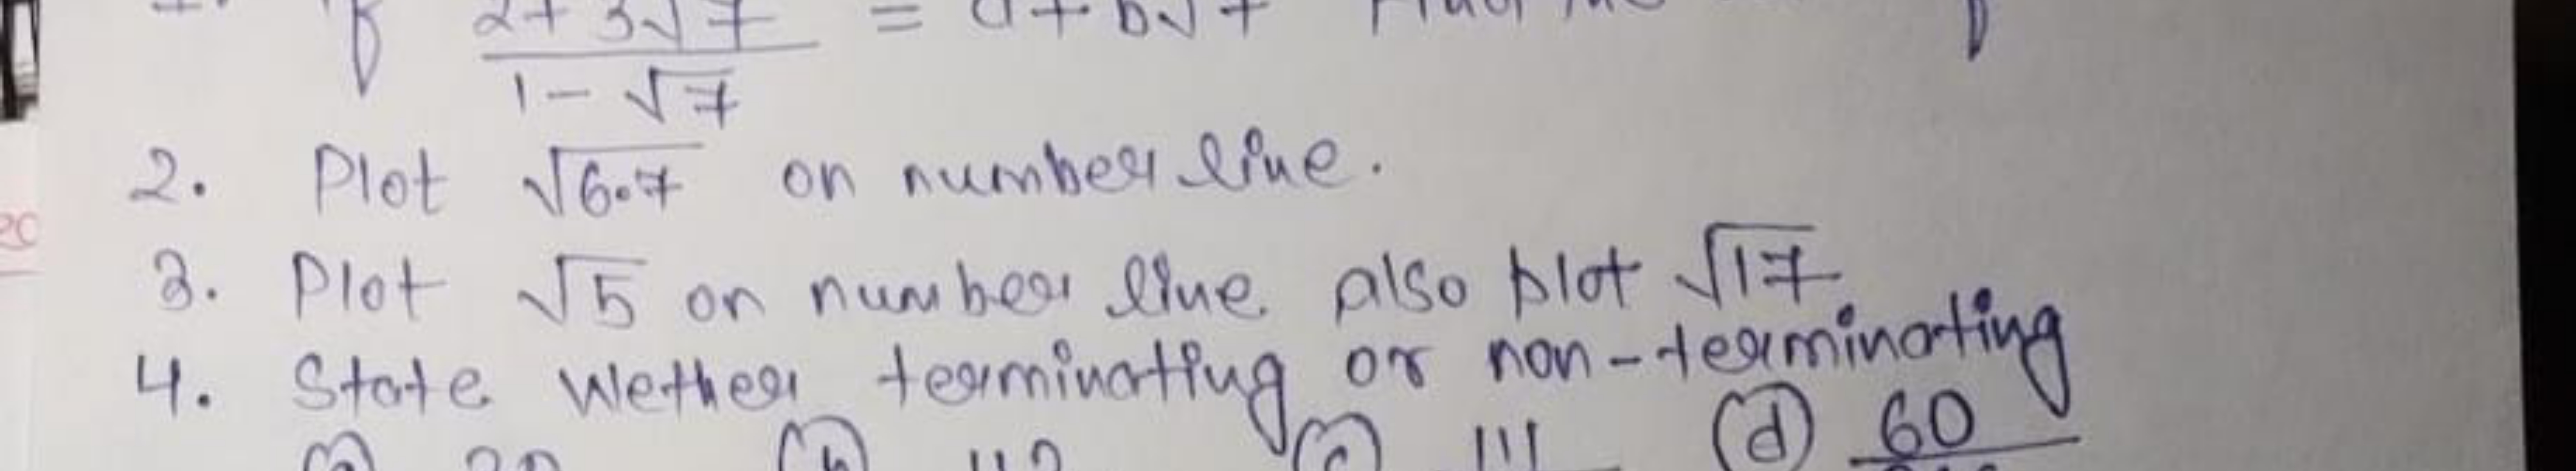 If 2+3√7 / 1-√7 = a+b√7
2. Plot √6.7 on number line.
3. Plot √5 on number line also plot √17
4. State wether terminating or non-terminating
(a) (b) (c) 111 (d) 60